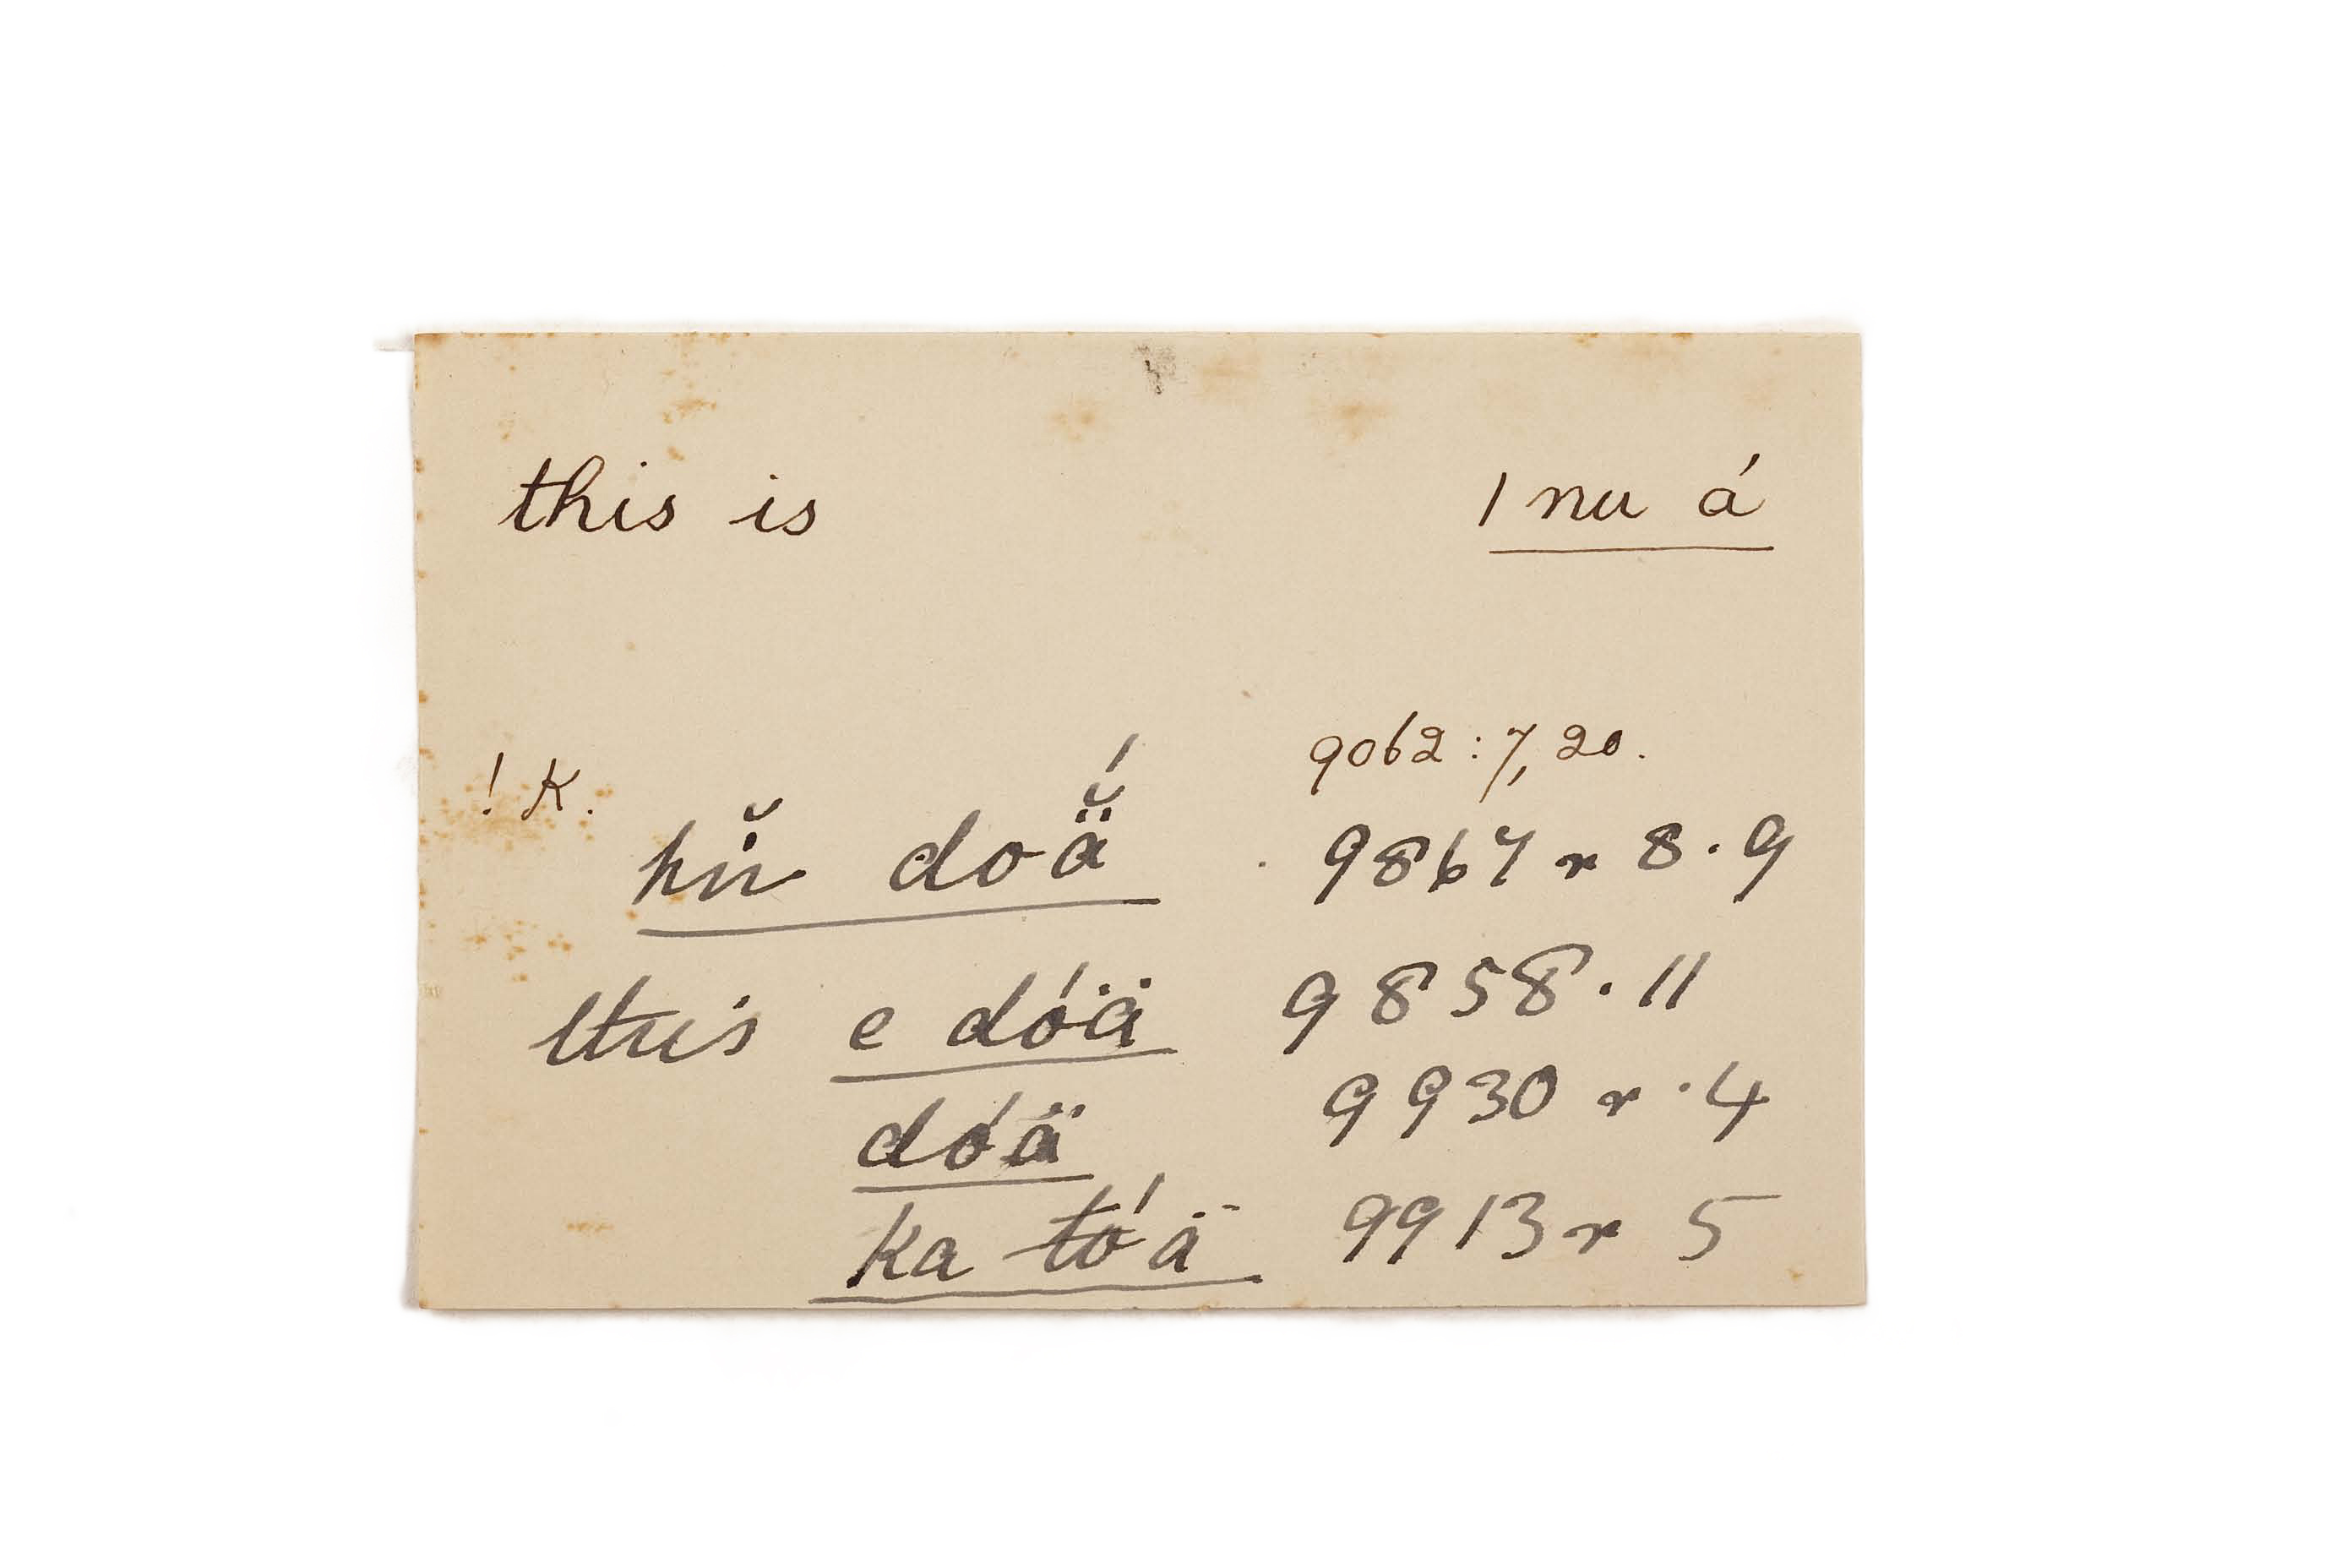 this is ǀnu á
ǃK. 9062 : 7, 20.
hĭn doä̆́ 9867 r 8 . 9
this e dóä 9858 . 11
dóä 9930 r . 4
ka tóä 9913 r 5